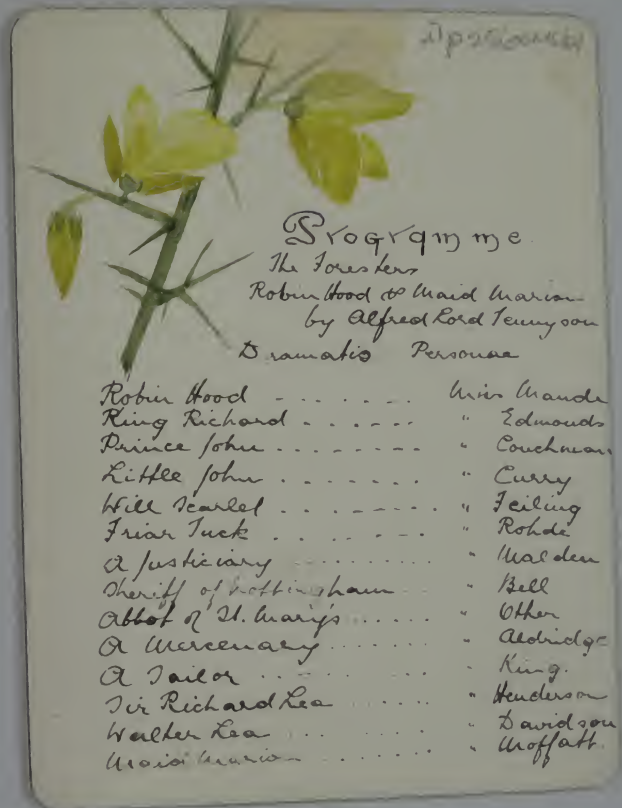 Programme.
The Foresters
Robin Hood & Maid Marian
by Alfred Lord Tennyson
Dramatis Personae
Robin Hood - . . . . . . Miss Maude
King Richard - . . . - . . " Edmonds
Prince John . . . . - . . . " Couchman
Little John . . . . . . . . " Curry
Will Scarlet . . . . . . . . " Feiling
Friar Tuck . . . . . . . . " Rohde
A Justiciary . . . . . . . . " Malden
Sheriff of Nottingham . . . " Bell
Abbot of St. Mary's . . . . . " Other
A Mercenary . . . . . . . " Aldridge
A Sailor . . . . . . . . " King.
Sir Richard Lea . . . . . " Henderson
Walter Lea . . . . . . . " Davidson
Maid Marian . . . . . . . " Moffatt.